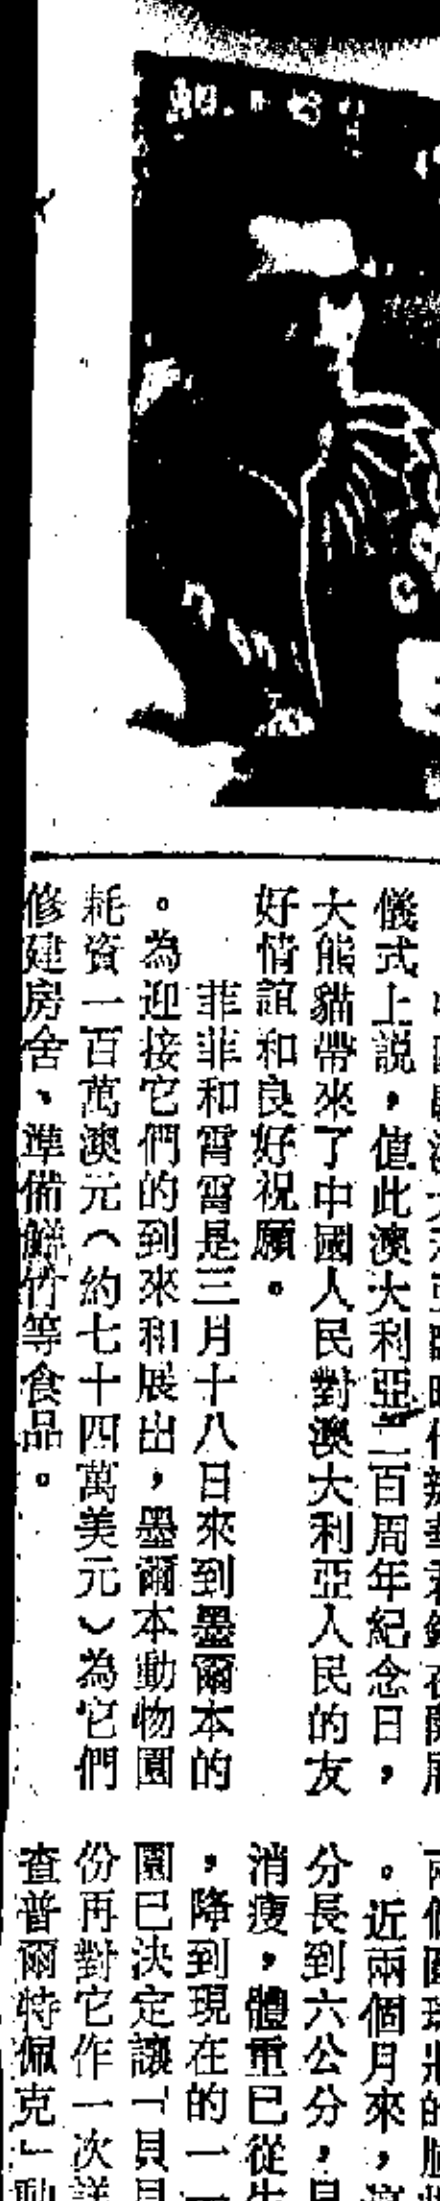 儀式上説，值此澳大利亞二百周年紀念日，
大熊貓帶來了中國人民對澳大利亞人民的友
好情誼和良好祝願。
菲菲和霄霄是三月十八日來到墨爾本的
。為迎接它們的到來和展出，墨爾本動物園
耗資一百萬澳元（約七十四萬美元）為它們
修建房舍、準備鮮竹等食品。
。近兩個月來，
分長到六公分，
消瘦，體重已從
，降到現在的一
園已決定讓「貝
份再對它作一次
查普爾特佩克」動